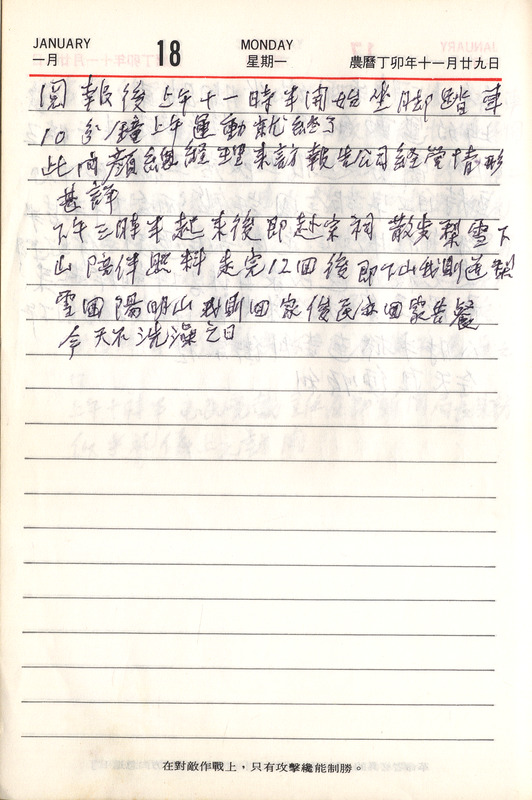 JANUARY 18 MONDAY
一月 星期一 農曆丁卯年十一月廿九日
閱報後上午十一時半開始坐腳踏車
10分鐘上午運動就終了
此內顏總經理來訪報告公司經營情形
甚詳
下午三時半起來後即赴宗祠散步梨雪下
山陪伴照料走完12回後即下山我則送梨
雪回陽明山我則回家俊民亦回家共餐
今天不洗澡之日
在對敵作戰上，只有攻擊纔能制勝。